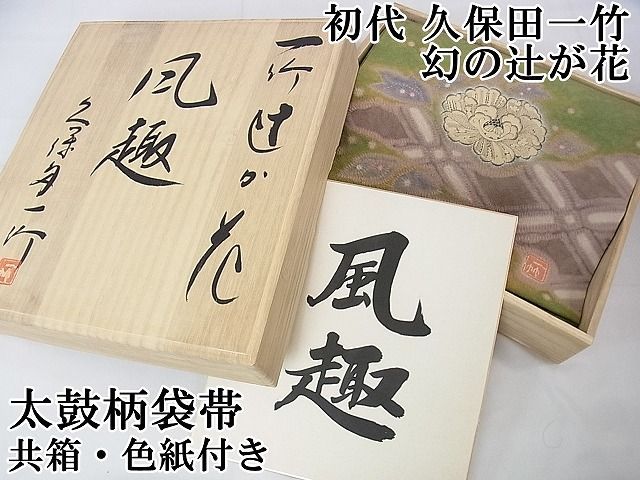 初代 久保田一竹
幻の辻が花
一竹辻が花
風趣
久保田一竹
風趣
太鼓柄袋帯
共箱・色紙付き